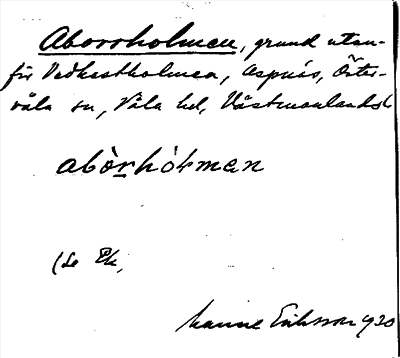 Aborrholmen, grund utan-
för Vedkastholmen, Aspnäs, Öster-
våla sn, Våla hd, Västmanlands l
abòrhòlmen
(Se Ek,
Manne Eriksson 1930